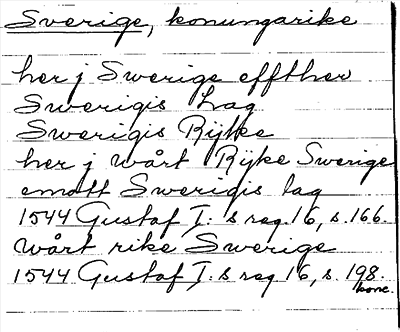 Sverige, konungarike
her j Swerige effther
Swerigis Lag
Swerigis Rijke
her j wårt Rijke Swerige
emott Swerigis lag
1544 Gustaf I:s reg. 16, s. 166.
wårt rike Swerige
1544 Gustaf I:s reg 16, s. 198.
konc.